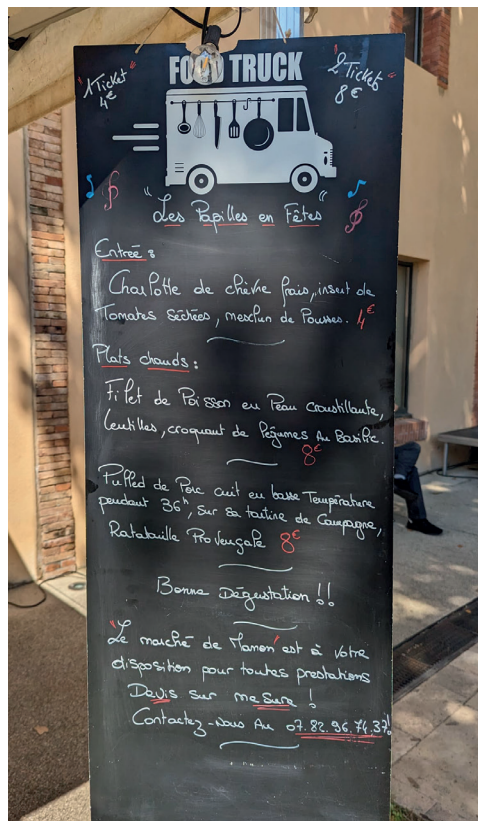 FOOD TRUCK
"1 Ticket"
4€
"2 Tickets"
8€
"Les Papilles en Fêtes"
Entrée :
Charlotte de chèvre frais, insert de
Tomates séchées, mesclun de Pousses. 4€
Plats chauds :
Filet de Poisson en Peau croustillante,
lentilles, croquant de légumes Au Basilic.
8€
Pulled de Porc cuit en basse Température
pendant 36h, sur sa tartine de Campagne,
Ratatouille Provençale 8€
Bonne Dégustation !!
"Le marché de Manon" est à votre
disposition pour toutes prestations
Devis sur mesure !
Contactez-Nous Au 07.82.96.74.37!